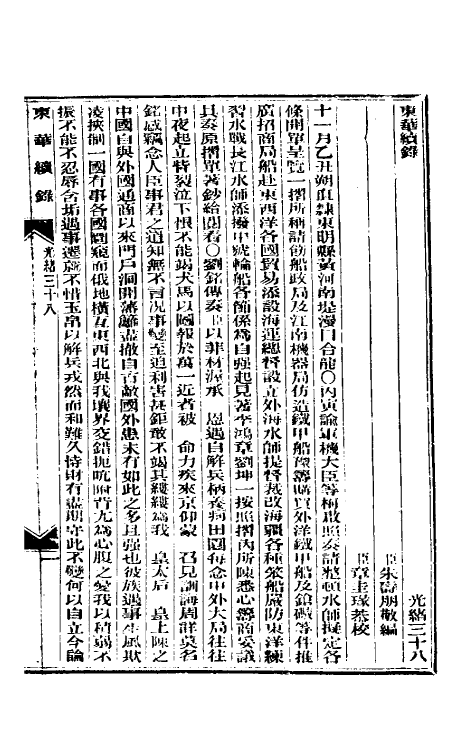 東華續錄
光緒三十八
臣朱壽朋敬編
臣章圭瑑恭校
十一月乙丑朔直隸東明縣黃河南堤漫口合龍○丙寅諭軍機大臣等梅啟照奏請整頓水師擬定各
條開單呈覽一摺所稱請飭船政局及江南機器局仿造鐵甲船豫籌購買外洋鐵甲船及鎗礮等件推
廣招商局船赴東西洋各國貿易添設海運總督設立外海水師提督裁改海疆各種笨船嚴防東洋練
習水戰長江水師添撥中號輪船各節係為自強起見著李鴻章劉坤一按照摺內所陳悉心籌商妥議
具奏原摺單著鈔給閱看○劉銘傳奏臣以菲材渥承 恩遇自解兵柄養疴田園每念中外大局往往
中夜起立眥裂泣下恨不能竭犬馬以圖報於萬一近者被 命力疾來京仰蒙 召見訓誨周詳莫名
銘感竊念人臣事君之道知無不言况事變至迫利害甚鉅敢不竭其縷縷為我 皇太后 皇上陳之
中國自與外國通商以來門戶洞開藩籬盡撤自古敵國外患未有如此之多且強也彼族遇事生風欺
凌挾制一國有事各國鬨窺而俄地橫亙東西北與我壤界交錯扼吭拊背尤為心腹之憂我以積弱不
振不能不忍辱含垢遇事遷就不惜玉帛以解兵戎然而和難久恃財有盡期守此不變何以自立今論
東華續錄
光緒三十八
一